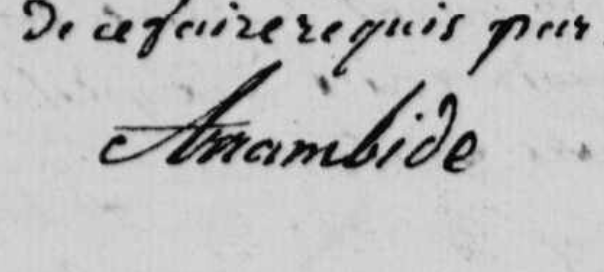 de ce faire requis par
Arrambide